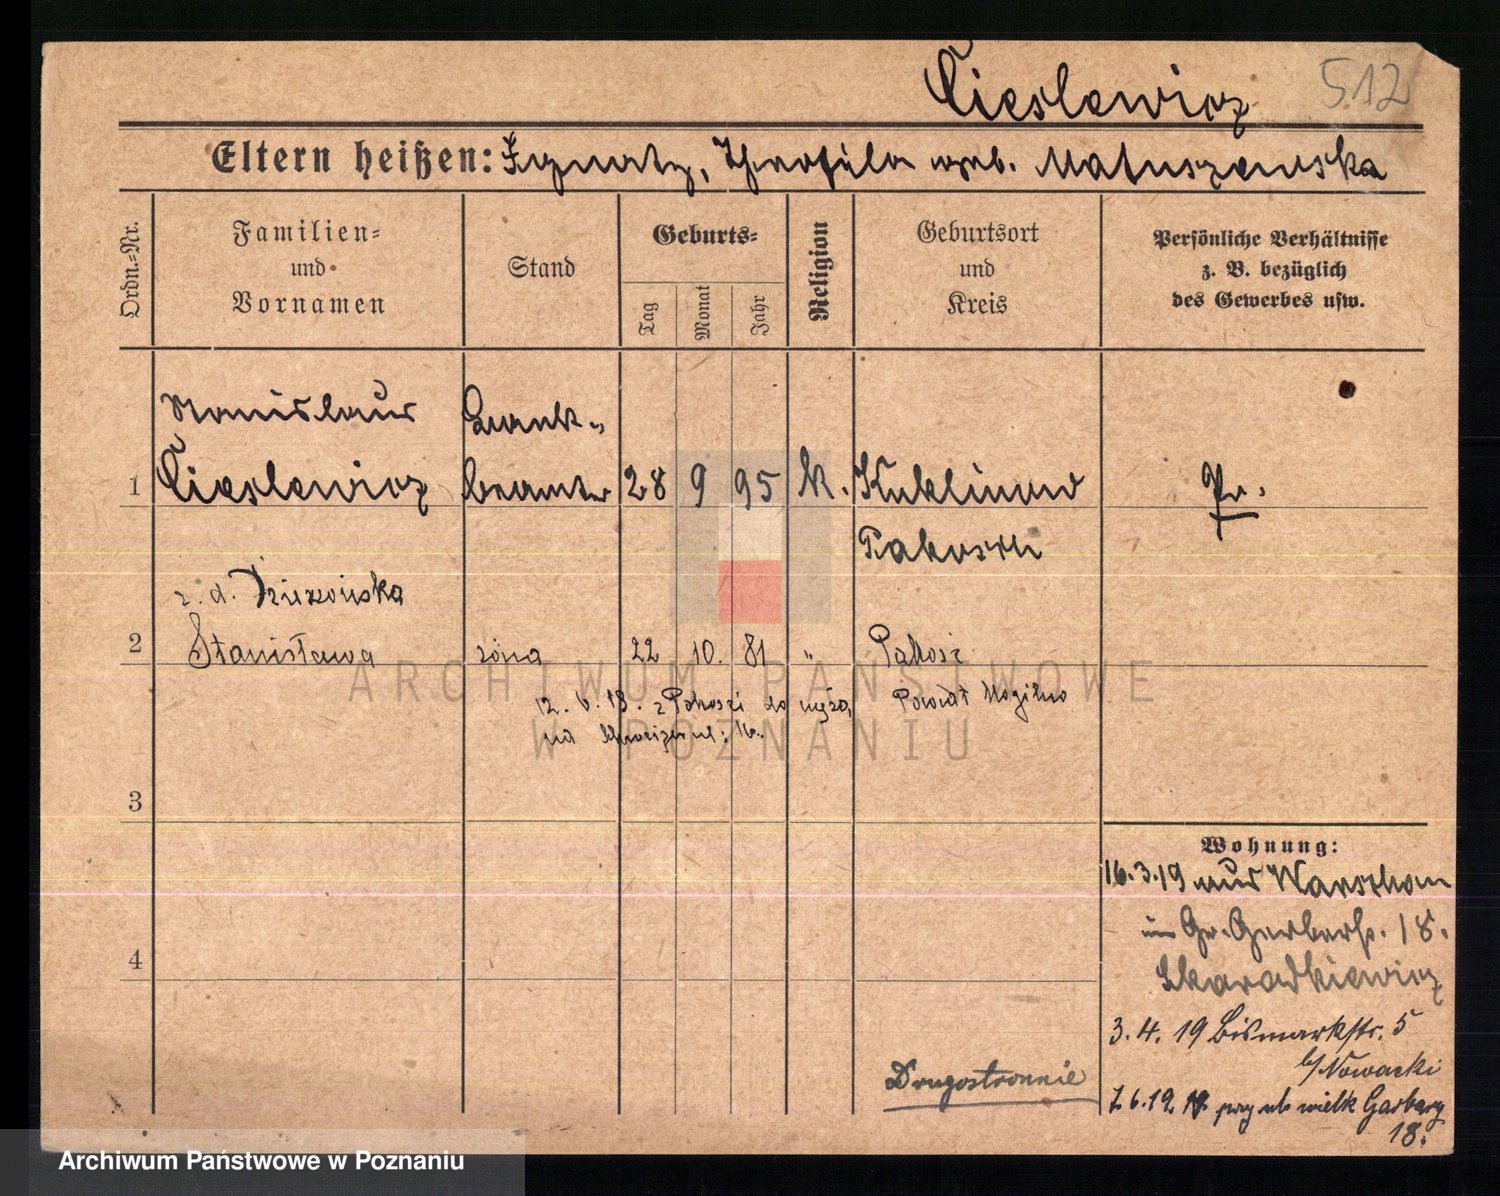 Cieslewicz 512
Eltern heißen: Ignatz, Theofila geb. Matuszewska
Ordn.-Nr.
Familien- und Vornamen
Stand
Geburts-
Tag Monat Jahr
Religion
Geburtsort und Kreis
Persönliche Verhältnisse z. B. bezüglich des Gewerbes usw.
Stanislaus Bank-
1 Cieslewicz beamter 28 9 95 k. Kuklinow Pr.
Pakosch
z. d.
2 Stanisława żona 22 10. 81 " Pakość
12. 6. 19. z Pakości do męża, Powiat Mogilno
na ul: 16.
3
Wohnung:
16.3.19 aus Warschau
in Gr. Gerberstr. 18.
Skaradkiewicz
4
3. 4. 19 Bismarkstr. 5
b/Nowacki
Drugostronnie
7.6.19 przy ul. wielk Garbary
18.
ARCHIWUM PAŃSTWOWE
W POZNANIU
Archiwum Państwowe w Poznaniu